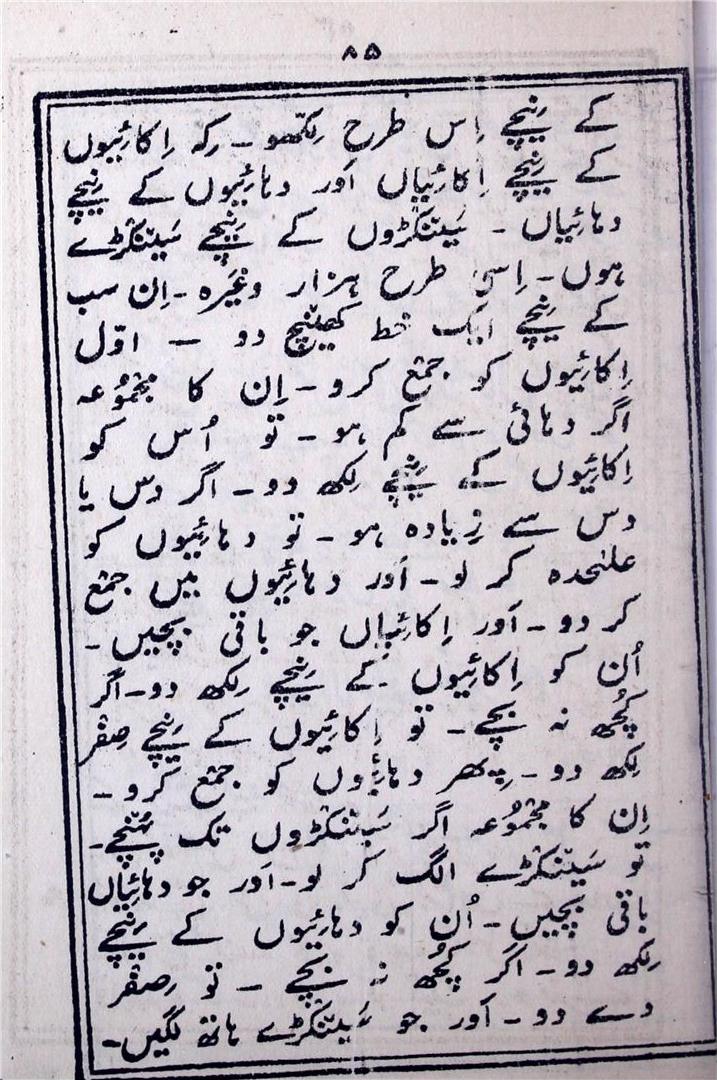 ۸۵
کے نِیچے اِس طرح لِکھو۔ کِہ اِکائیوں
کے نِیچے اِکائیاں اَور دہائیوں کے نِیچے
دہائیاں۔ سَینکڑوں کے نِیچے سَینکڑے
ہوں۔ اِسی طرح ہزار وغَیرہ۔ اِن سب
کے نِیچے ایک خط کھینچ دو — اوّل
اِکائیوں کو جمع کرو۔ اِن کا مجمُوعہ
اگر دہائی سے کم ہو۔ تو اُس کو
اِکائیوں کے نِیچے لِکھ دو۔ اگر دس یا
دس سے زِیادہ ہو۔ تو دہائیوں کو
علٰحدہ کر لو۔ اَور دہائیوں میں جمع
کر دو۔ اَور اِکائیاں جو باقی بچیں۔
اُن کو اِکائیوں کے نِیچے لِکھ دو۔ اگر
کُچھ نہ بچے۔ تو اِکائیوں کے نِیچے صِفر
لِکھ دو۔ پِھر دہائیوں کو جمع کرو۔
اِن کا مجمُوعہ اگر سَینکڑوں تک پہُنچے۔
تو سَینکڑے الگ کر لو۔ اَور جو دہائیاں
باقی بچیں۔ اُن کو دہائیوں کے نِیچے
لِکھ دو۔ اگر کُچھ نہ بچے — تو صِفر
دے دو۔ اَور جو سَینکڑے ہاتھ لگیں۔